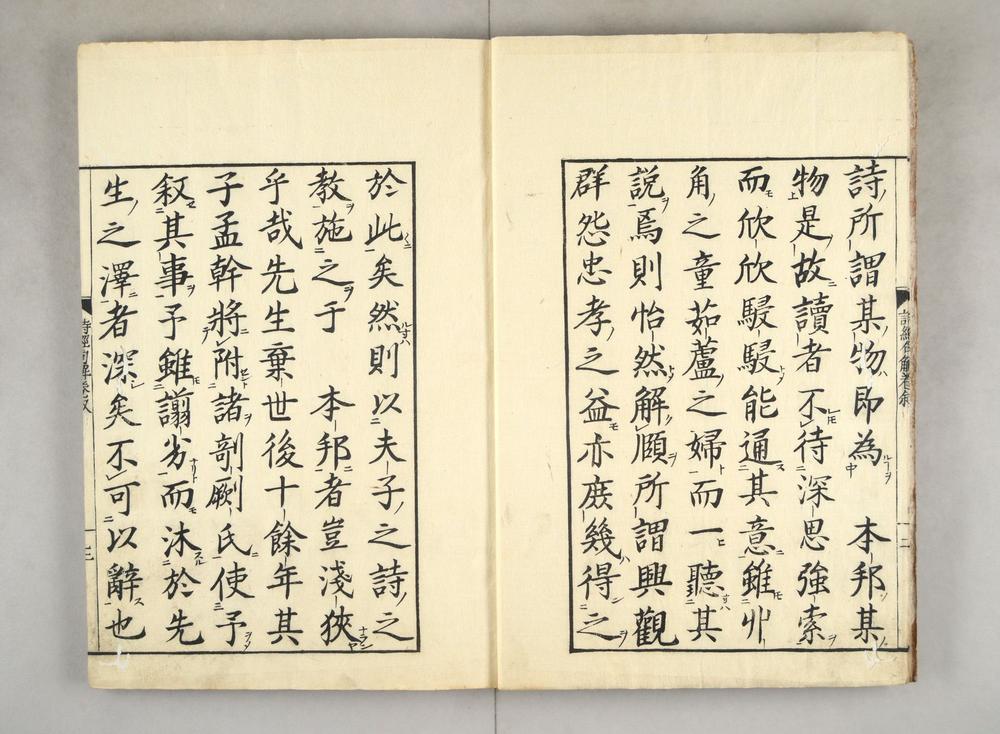 詩所謂某物即為　本邦某
物是故讀者不待深思強索
而欣欣駸駸能通其意雖丱
角之童茹蘆之婦而一聽其
說焉則怡然解頤所謂興觀
群怨忠孝之益亦庶幾得之
於此矣然則以夫子之詩之
教施之于　本邦者豈淺狹
乎哉先生棄世後十餘年其
子孟幹將附諸剞劂氏使予
敘其事予雖謭劣而沐於先
生之澤者深矣不可以辭也